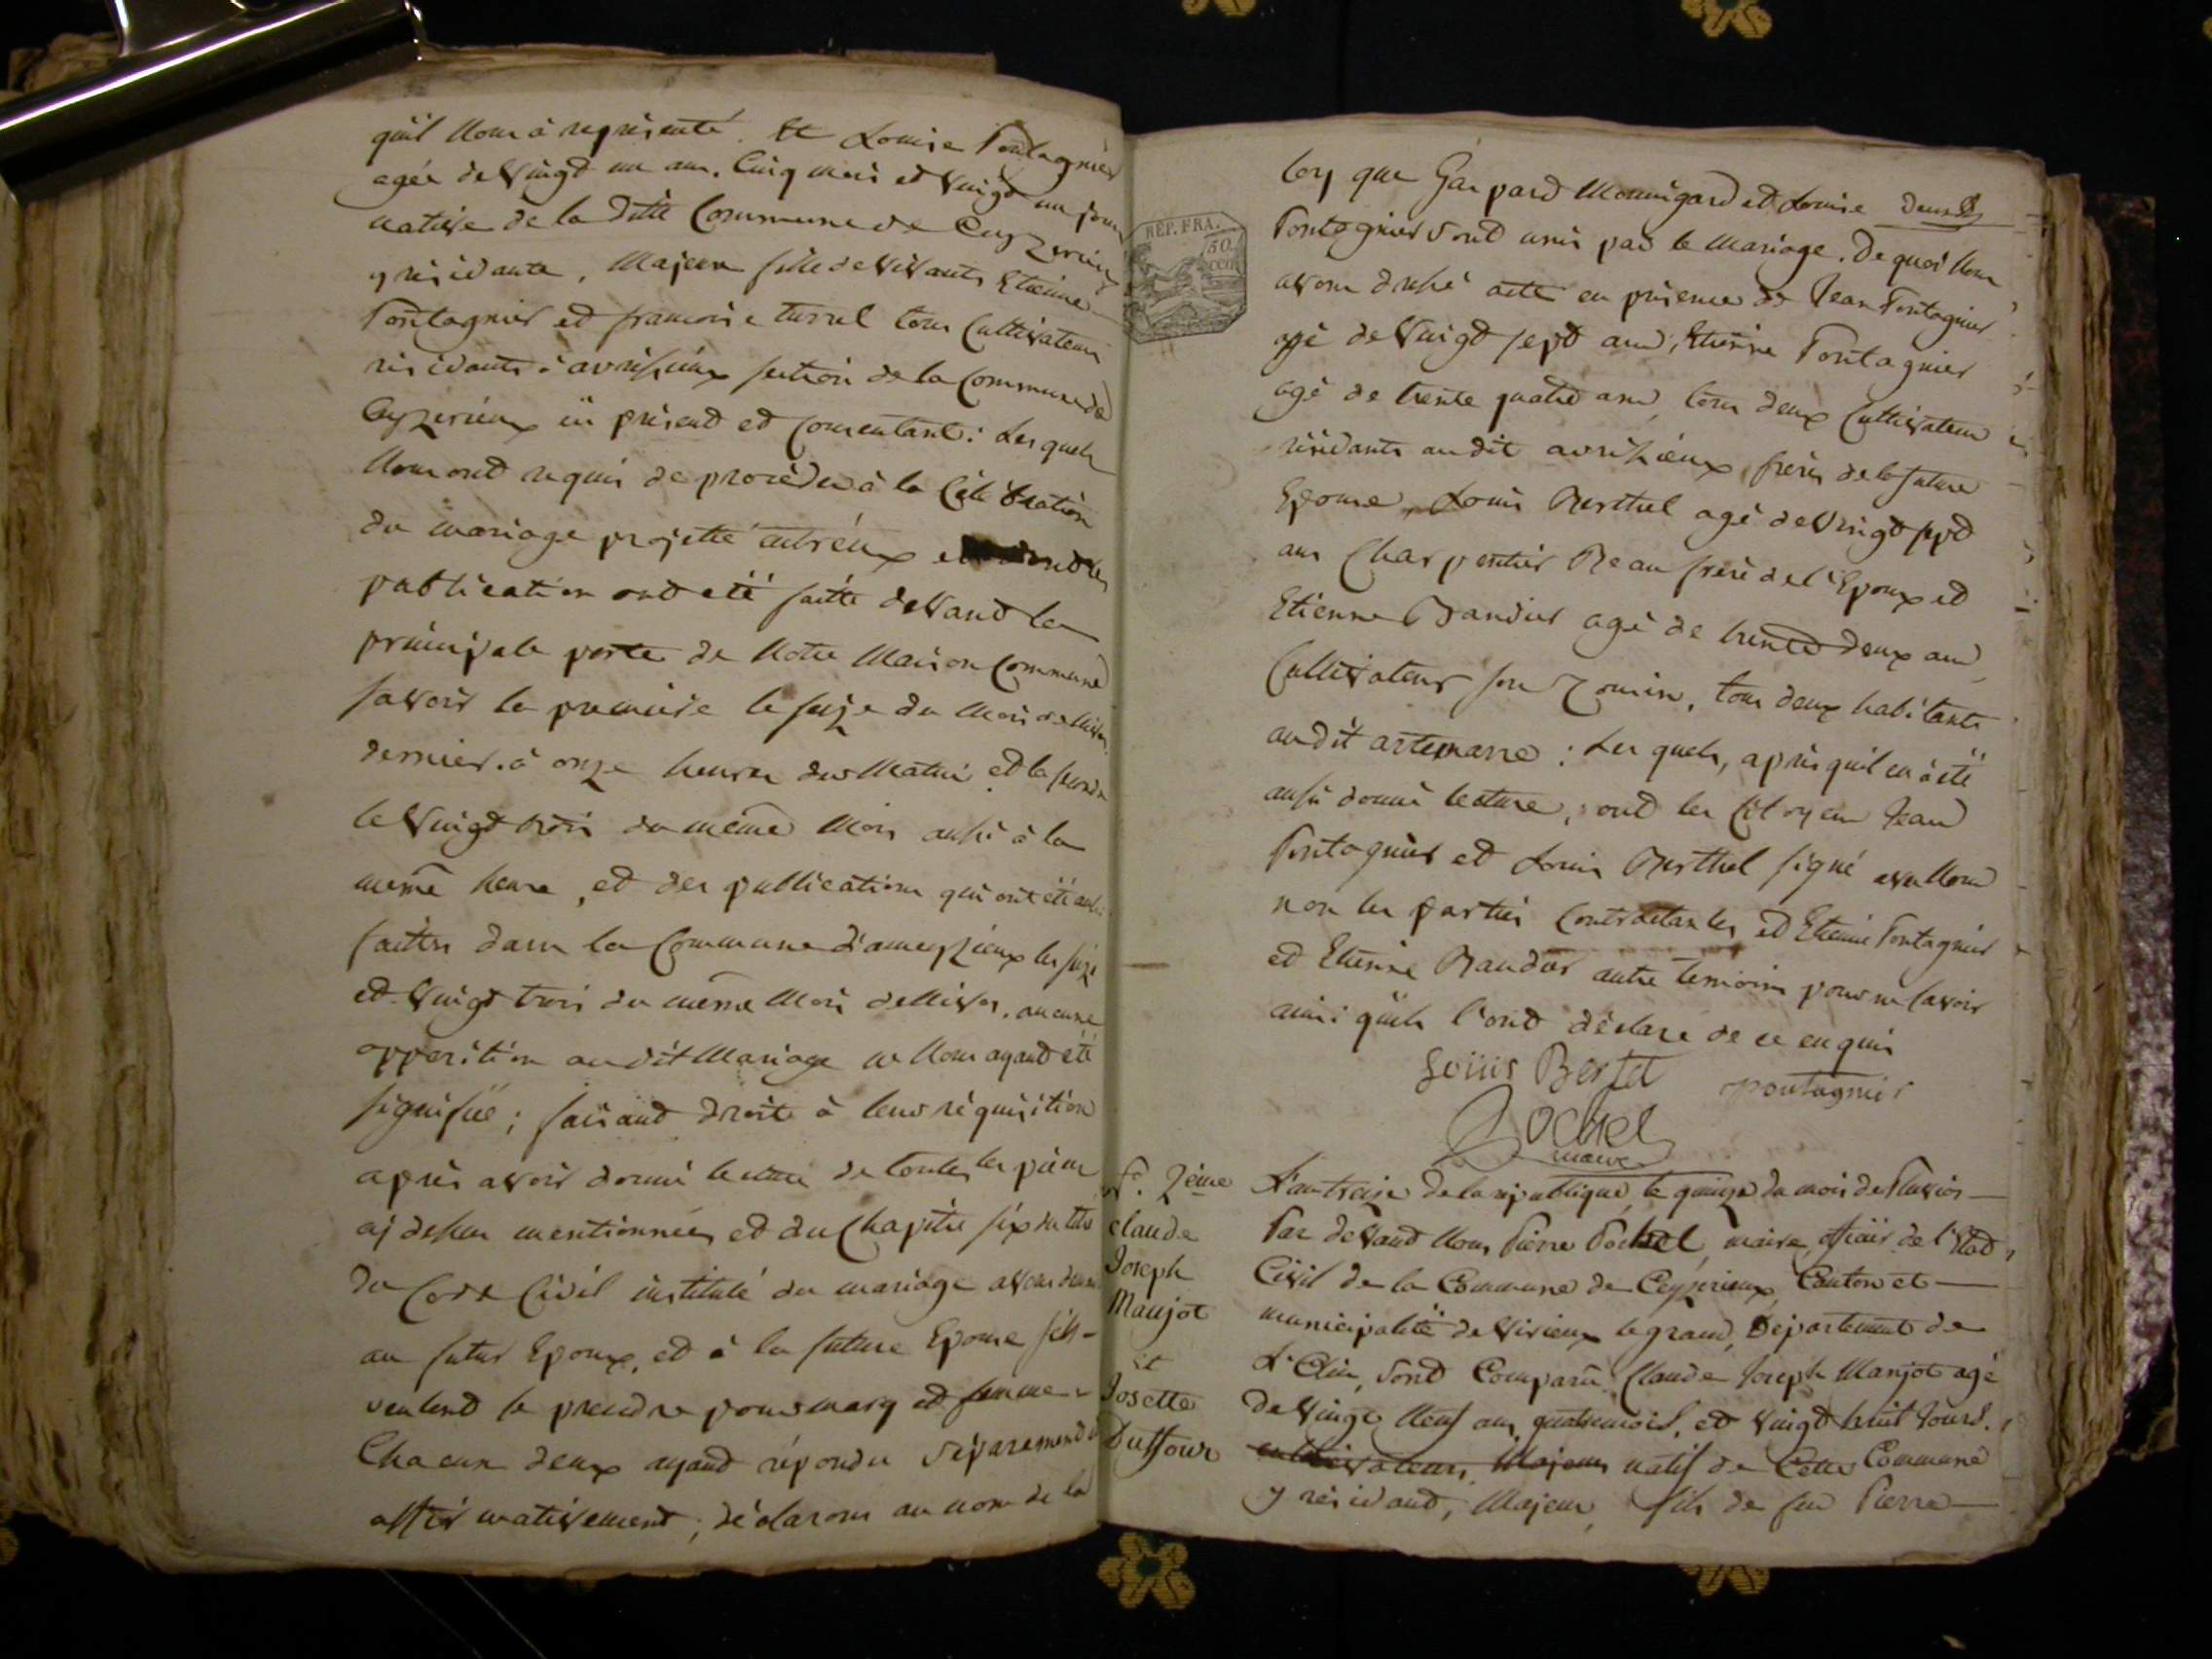 qu'il Nous à représenté. Et Louise Pontagnier
agée de Vingd un ans. Cinq mois et Vingd un jours
native de la ditte Commune de Ceyzerieux
y residante, Majeure fille de Vivants Etienne
Pontagnier et francoise turrel tous Cultivateurs
residants à avrissieux section de la Commune de
Ceyzerieux ici présend ed Consentant: Les quels
Nous ond requis de procéder à la Célébration
du mariage projetté entréux et dond les
publication ond eté faitte deVand la
principale porte de Notre Maison Commune
savoir la premiere le seize du Mois de Nivos.
dernier. à onze heures du Matin ed la seconde
le Vingd trois du même Mois aussi à la
meme heure, ed des publications qui ont été aussi
faittes dans la Commune d'ameyzieux les seize
ed Vingd trois du même Mois de Nivos. aucune
opposition au dit Mariage ne Nous ayand eté
signifiée; faisand droit à leur réquisition
après avoir donné lecture de toutes les pieces
cy dessus mentionnées ed du Chapitre six du titre
du Code Civil institulé du mariage avons demandé
au futur Epoux, ed à la future Epouse sils
veulend se prendre pour mary ed femme
Chacun deux ayand répondu séparemend
affirmativement; déclarons au nom de la
RÉP. FRA.
50
cent
Loy que Gaspard Monnigard ed Louise deux
Pontagnier sond unis par le Mariage. De quoi Nous
avons dressé acte en présence de Jean Pontagnier
agé de Vingd sepd ans, Etienne Pontagnier
agé de trente quatre ans, tous deux Cultivateurs
résidants au dit avrissieux, freres de la future
Epouse, Louis Berthel agé de Vingd sepd
ans Charpentier Beau frere de l'Epoux ed
Etienne Bandier agé de trente deux ans
Cultivateur son Cousin, tous deux habitants
au dit artemare: Les quels, après quil en à été
aussi donné lecture, ond les Citoyens Jean
Pontagnier ed Louis Berthel signé avec Nous
non les parties Contractantes ed Etienne Pontagnier
ed Etienne Bandier autre temoins pour ne savoir
ainsi quils l'ond déclaré de ce enquis
Louis Bertet pontagnier
Pochet
maire
No. 2ème
Claude
Joseph
Maujot
et
Josette
Duffour
L'an treize de la république, le quinze du mois de Pluvios
Par deVand Nous Pierre Pochet, maire, officier de l'Etad
Civil de la Commune de Ceyzerieux, Canton et
municipalité de Virieux le grand, Département de
L'Ain, Sond Comparu Claude Joseph Manjot agé
de Vingt Neuf ans, quatre mois, et Vingd huit Jours.
cultivateurs, Majeurs natif de Cette Commune
y résidand, Majeur, fils de feu Pierre